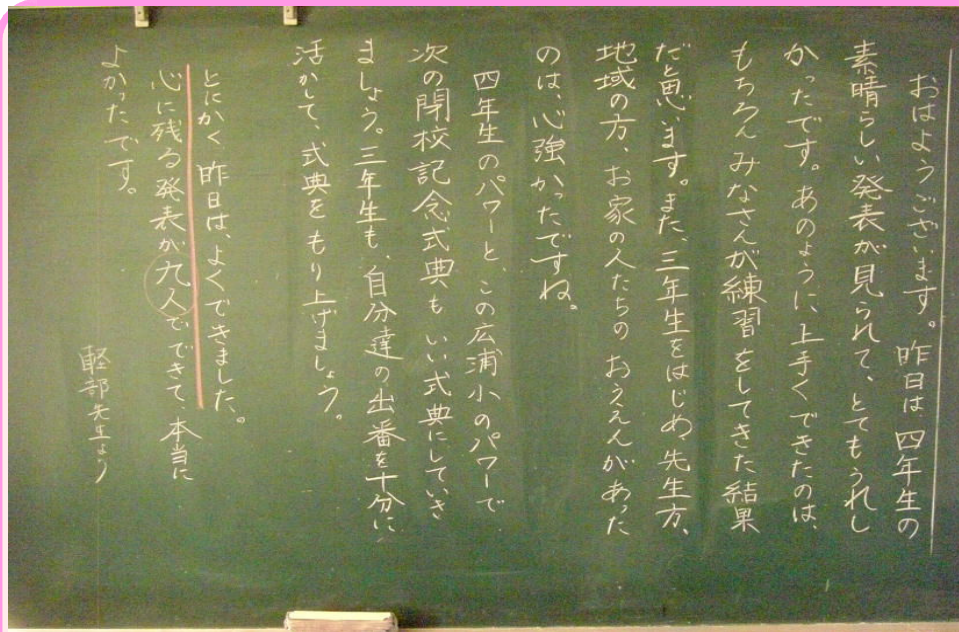 おはようございます。昨日は四年生の
素晴らしい発表が見られて、とてもうれし
かったです。あのように上手くできたのは、
もちろんみなさんが練習をしてきた結果
だと思います。また、三年生をはじめ、先生方、
地域の方、お家の人たちのおえんがあった
のは、心強かったですね。
四年生のパワーと、この広浦小のパワーで
次の閉校記念式典もいい式典にしていき
ましょう。三年生も、自分達の出番を十分に
活かして、式典をもり上げましょう。
とにかく昨日は、よくできました。
心に残る発表が九人でできて、本当に
よかったです。
軽部先生より